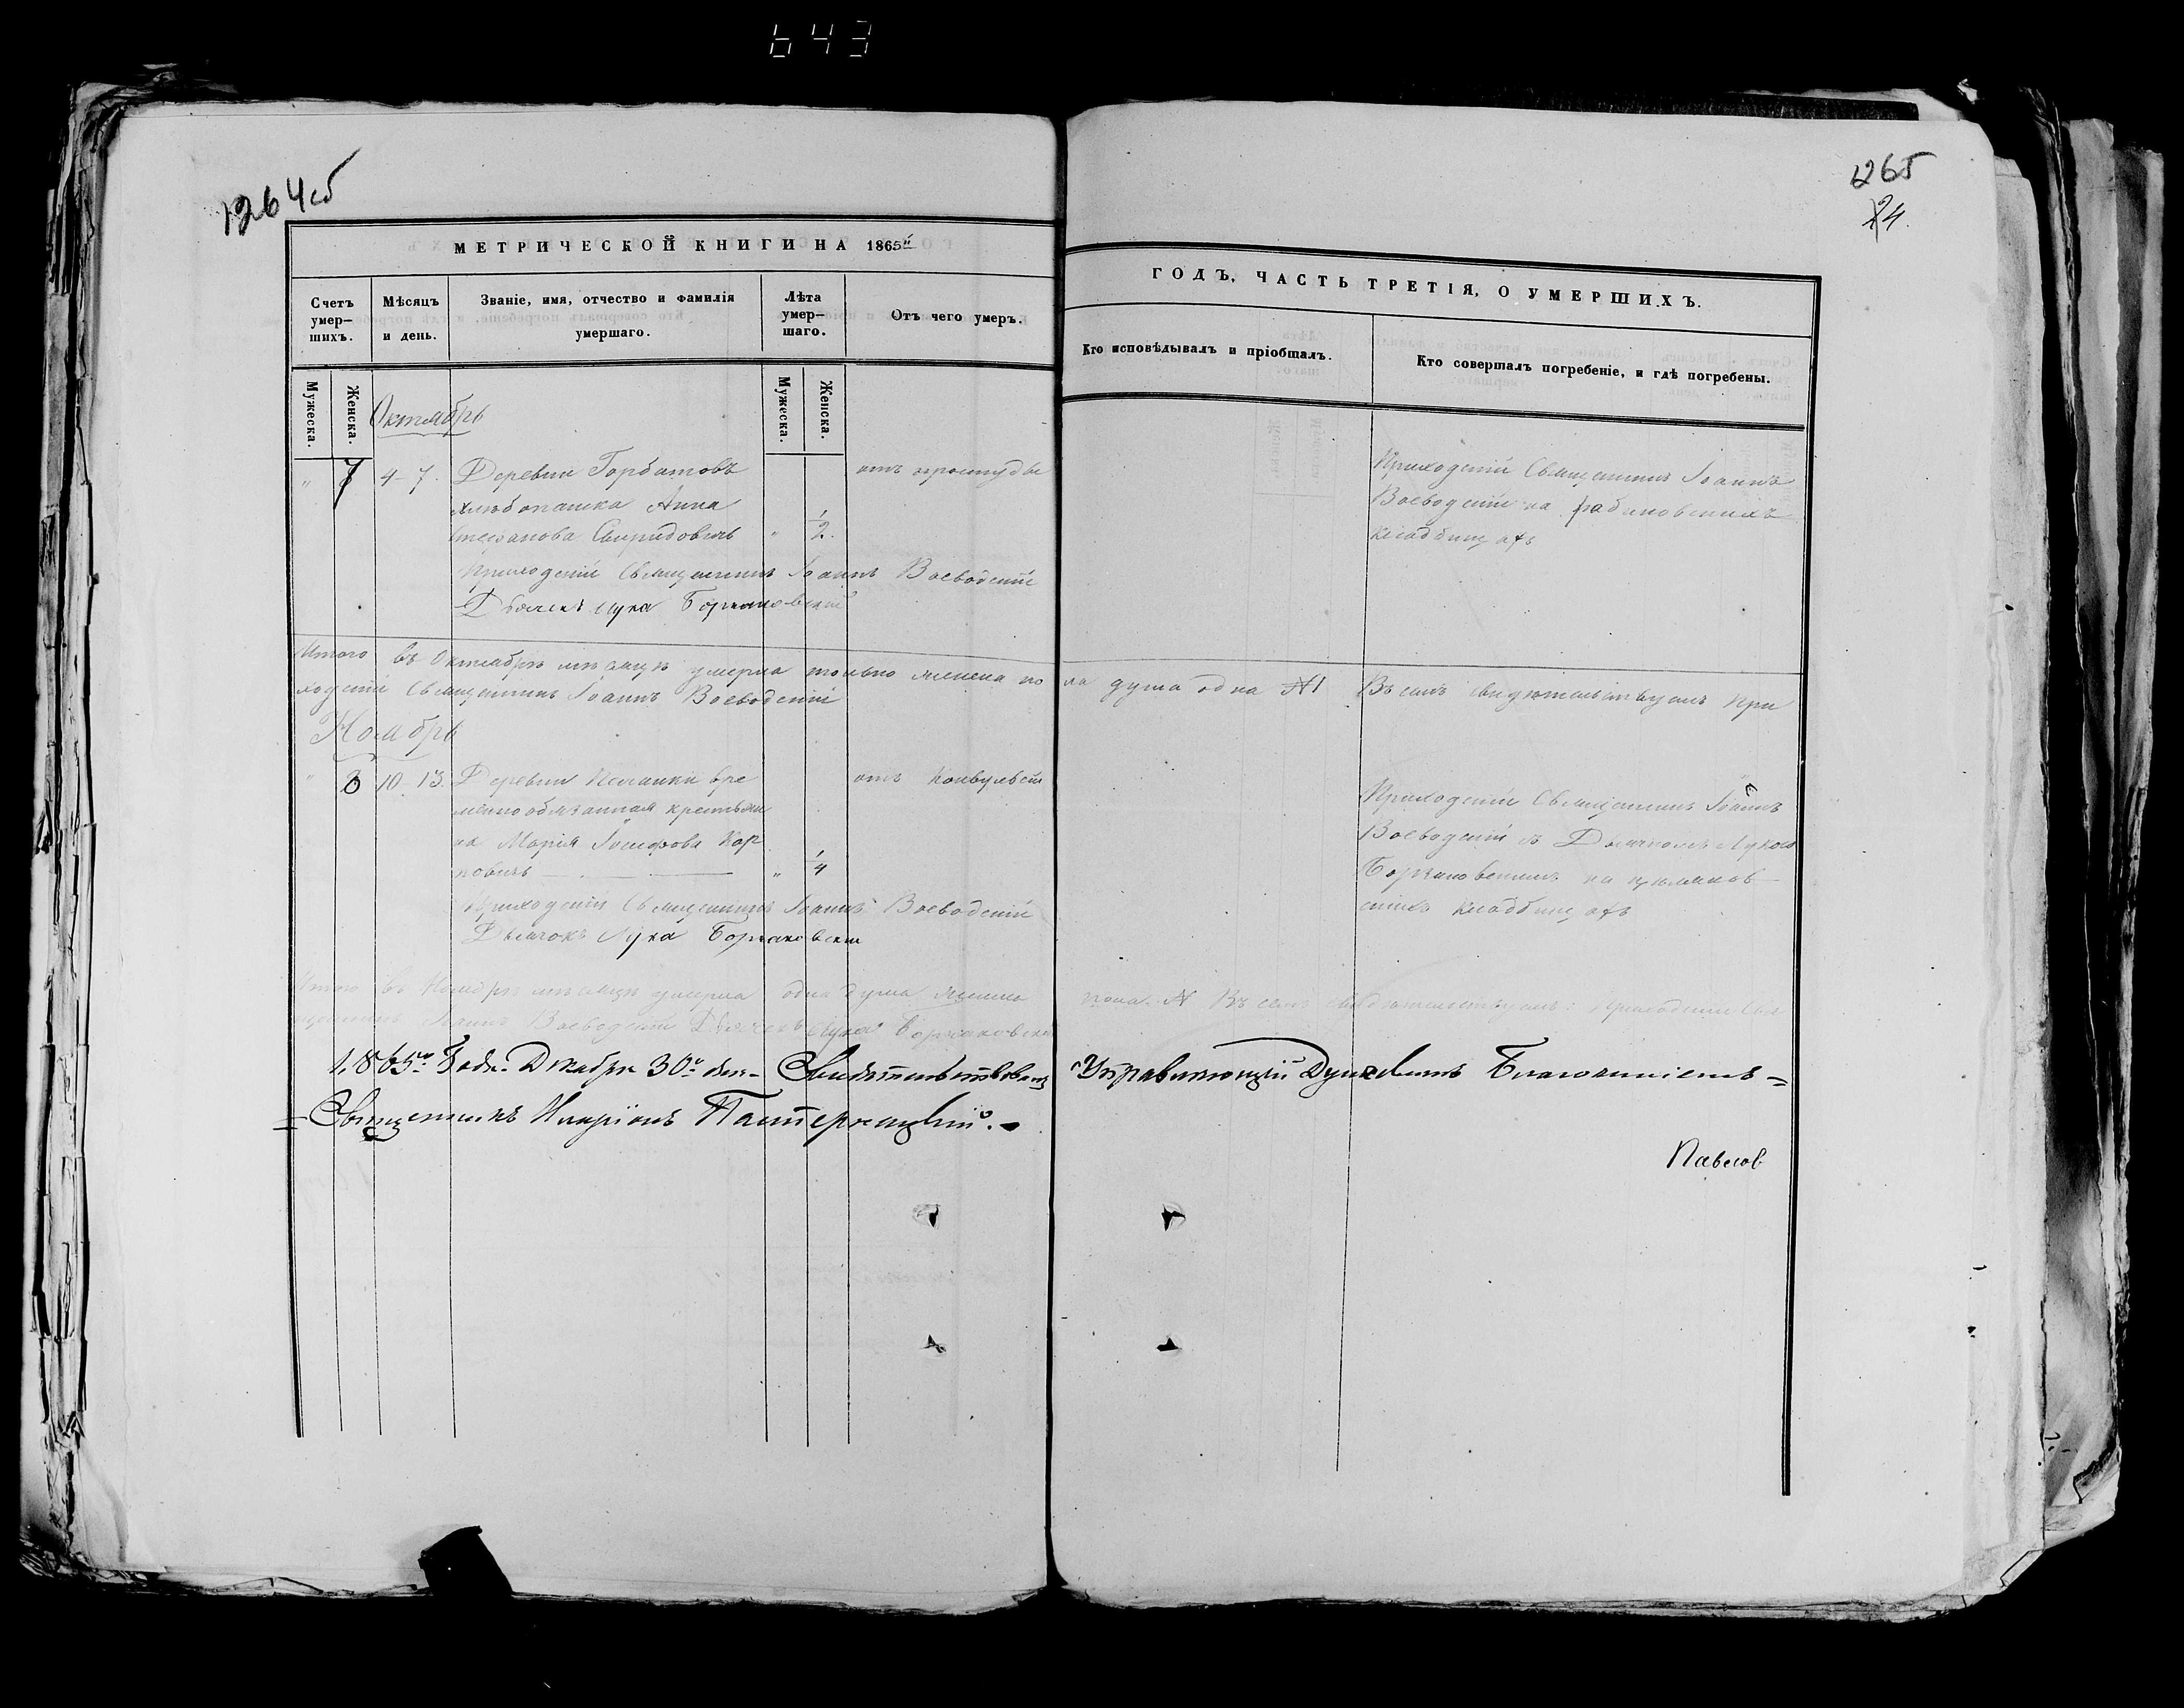 643
1264об
1265
24.
МЕТРИЧЕСКОЙ КНИГИ НА 1865й
ГОДЪ, ЧАСТЬ ТРЕТІЯ, О УМЕРШИХЪ.
Счетъ умер-шихъ.
Мѣсяцъ и день.
Званіе, имя, отчество и фамилія умершаго.
Лѣта умер-шаго.
Отъ чего умеръ.
Кто исповѣдывалъ и пріобщалъ.
Кто совершалъ погребеніе, и гдѣ погребены.
Мужеска. Женска.
Мужеска. Женска.
Октябрь
" 7 4-7. Деревни Горбатовъ отъ простуды
хлѣбопашка Анна
Стефанова Свиридовичъ " 1/2.
Приходскій Священникъ Іоаннъ
Воеводскій на
кладбищахъ
Приходскій Священникъ Іоаннъ Воеводскій
Дьячекъ Лука
Итого въ Октябрѣ мѣсяцѣ умерла только женска по ла душа одна №1 Въ семъ свидѣтельствуемъ При
ходскій Священникъ Іоаннъ Воеводскій
Ноябрь
" 8 10-13. Деревни вре отъ конвульсій
менно обязанная крестьян
ка Марія Іосифова Кар
повичъ " 1/4
Приходскій Священникъ Іоаннъ
Воеводскій съ Дьячкомъ Лукою
на
скихъ кладбищахъ
Приходскій Священникъ Іоаннъ Воеводскій
Дьячокъ Лука
Итого въ Ноябрѣ мѣсяцѣ умерла одна душа женска пола. Въ семъ свидѣтельствуемъ: Приходскій Свя
щенникъ Іоаннъ Воеводскій Дьячекъ Лука
1865го Года Декабря 30го дня Свидѣтельствовалъ Управляющій Благочиніемъ =
= Священникъ Иларіонъ